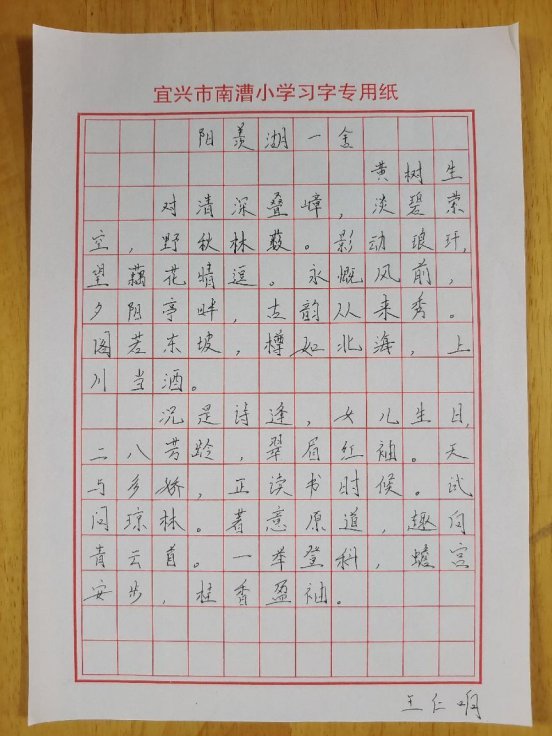 宜兴市南漕小学习字专用纸
阳羡湖一舍
黄树生
对清深叠嶂，淡碧萦
空，野秋林薮。影动琅玕，
望藕花晴逗。永慨风前，
夕阳亭畔，古韵从来秀。
阁若东坡，樽如北海，上
川当酒。
况是诗逢，女儿生日，
二八芳龄，翠眉红袖。天
与多娇，正读书时候。试
问琼林。著意原道，趣向
青云首。一举登科，蟾宫
安步，桂香盈袖。
王仁明